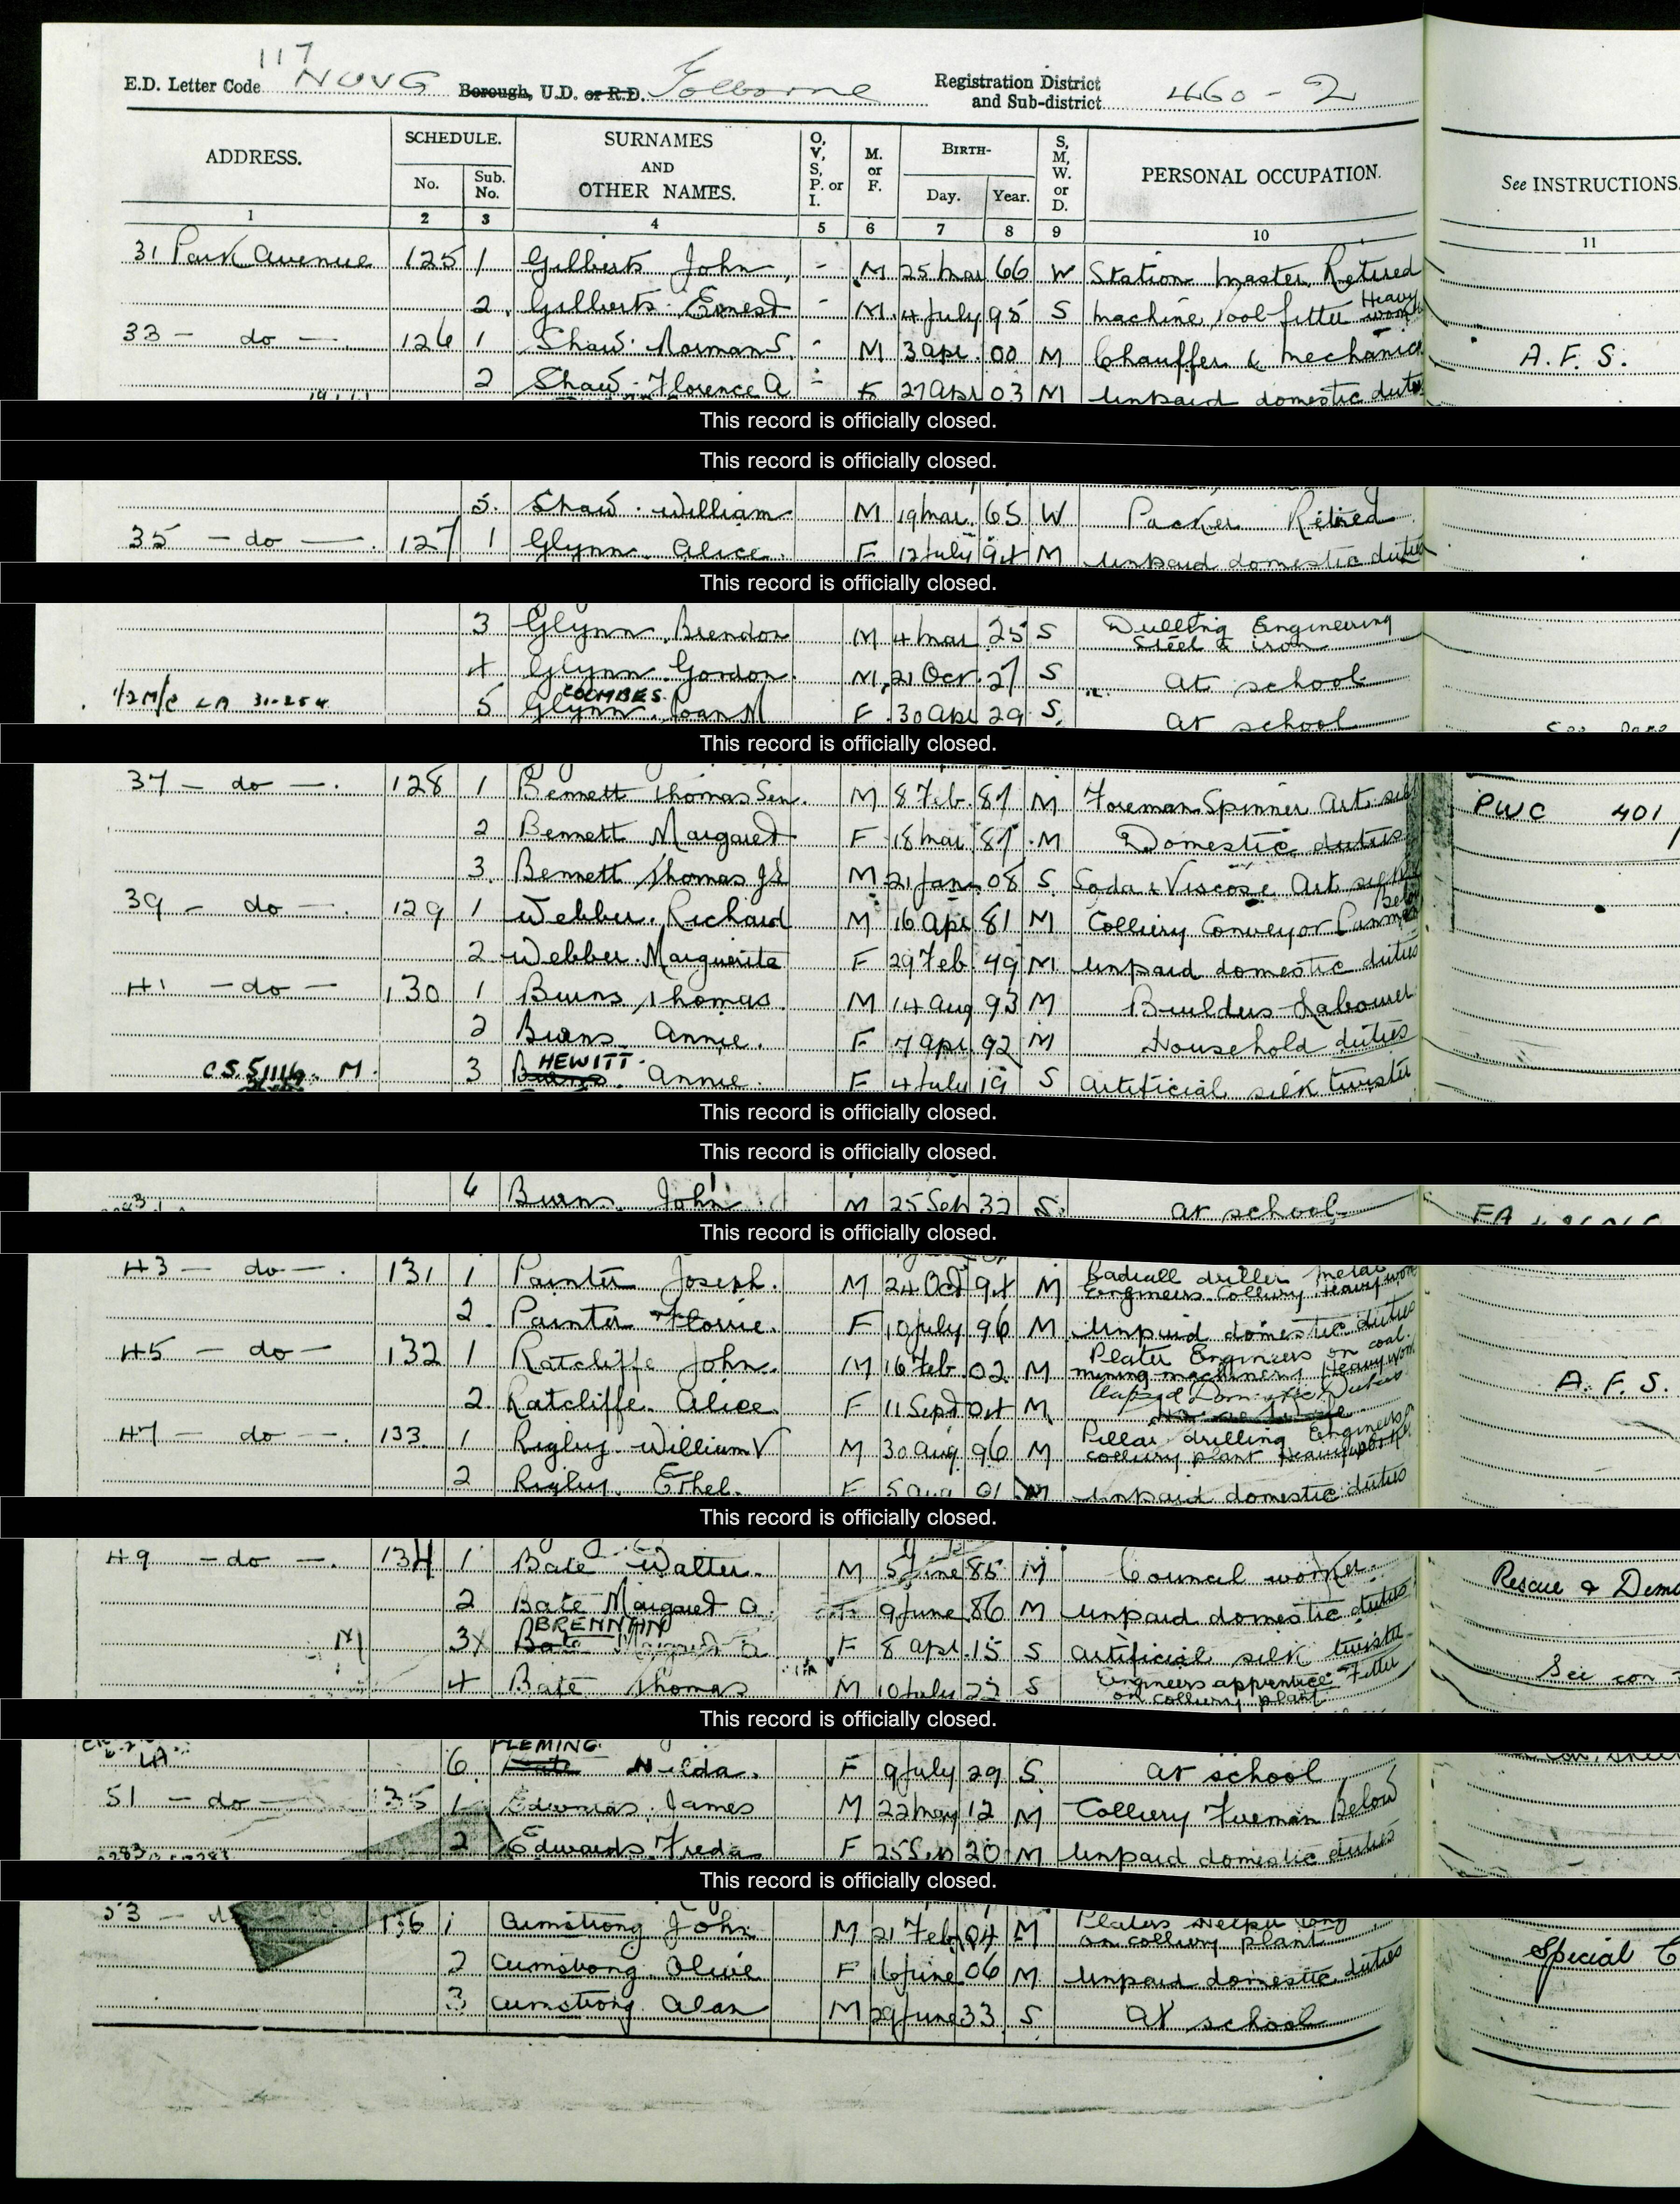 117
E.D. Letter Code NUVG Borough, U.D. or R.D. Golborne Registration District and Sub-district 460 - 2
ADDRESS. SCHEDULE. SURNAMES AND OTHER NAMES. O, V, S, P. or I. M. or F. BIRTH- S, M, W. or D. PERSONAL OCCUPATION. See INSTRUCTIONS
No. Sub. No. Day. Year.
1 2 3 4 5 6 7 8 9 10 11
31 Park Avenue 125 1 Gilberts John, - M 25 Mar 66 W Station Master Retired
2 Gilberts Ernest - M 4 July 95 S Machine Tool fitter Heavy work
33 - do - 126 1 Shaw Norman S. - M 3 Apr 00 M Chauffer & Mechanic A.F.S.
2 Shaw Florence A - F 27 Apr 03 M Unpaid domestic duties
This record is officially closed.
This record is officially closed.
5. Shaw William M 19 Mar 65 W Packer Retired
35 - do - 127 1 Glynn Alice F 12 July 94 M Unpaid domestic duties
This record is officially closed.
3 Glynn Brendon M 4 Mar 25 S Drilling Engineering Steel & iron
4 Glynn Gordon M 21 Oct 27 S at school
COOMBES
5 Glynn Joan M F 30 Apr 29 S at school
This record is officially closed.
37 - do - 128 1 Bennett Thomas Sen. M 8 Feb 87 M Foreman Spinner Art. silk PWC 401
2 Bennett Margaret F 18 Mar 87 M Domestic duties
3 Bennett Thomas M 21 Jan 08 S Soda & Viscose Art silk
39 - do - 129 1 Webber Richard M 16 Apr 81 M Colliery Conveyor Panman Below
2 Webber Marguerite F 29 Feb 49 M Unpaid domestic duties
41 - do - 130 1 Burns Thomas M 14 Aug 93 M Builders Labourer
2 Burns Annie. F 7 Apr 92 M Household duties
HEWITT
M. 3 Burns Annie. F 4 July 19 S Artificial silk twister
This record is officially closed.
This record is officially closed.
6 Burns John M 25 Sep 32 S. at school
This record is officially closed.
43 - do - 131 1 Painter Joseph. M 24 Oct 94 M Radiall driller metal Engineers Colliery Heavy work
2. Painter Florrie. F 10 July 96 M Unpaid domestic duties
45 - do - 132 1 Ratcliffe John. M 16 Feb 02 M Plater Engineers on coal mining machinery Heavy work
2 Ratcliffe Alice. F 11 Sept 04 M Unpaid Domestic Duties A.F.S.
47 - do - 133 1 Rigby William V M 30 Aug 96 M Pillar drilling Engineers colliery plant Heavy work
2 Rigby Ethel. F 5 Aug 01 M Unpaid domestic duties
This record is officially closed.
49 - do - 134 1 Bate Walter. M 5 June 85 M Council worker Rescue & Demo
2 Bate Margaret A. F 9 June 86 M Unpaid domestic duties
BRENNAN
M 3 Bate Margaret A F 8 Apr 15 S Artificial silk twister
4 Bate Thomas M 10 July 22 S Engineers apprentice Fitter on colliery plant
This record is officially closed.
FLEMING
LA 6. Bate Nelda. F 9 July 29 S at school
51 - do - 135 1 Edwards James M 22 May 12 M Colliery Fireman Below
2 Edwards Freda F 25 Sep 20 M Unpaid domestic duties
This record is officially closed.
53 - do 136 1 Armstrong John M 21 Feb 04 M Platers Helper on colliery plant
2 Armstrong Olive F 16 June 06 M Unpaid domestic duties Special C
3 Armstrong Alan M 29 June 33 S. at school